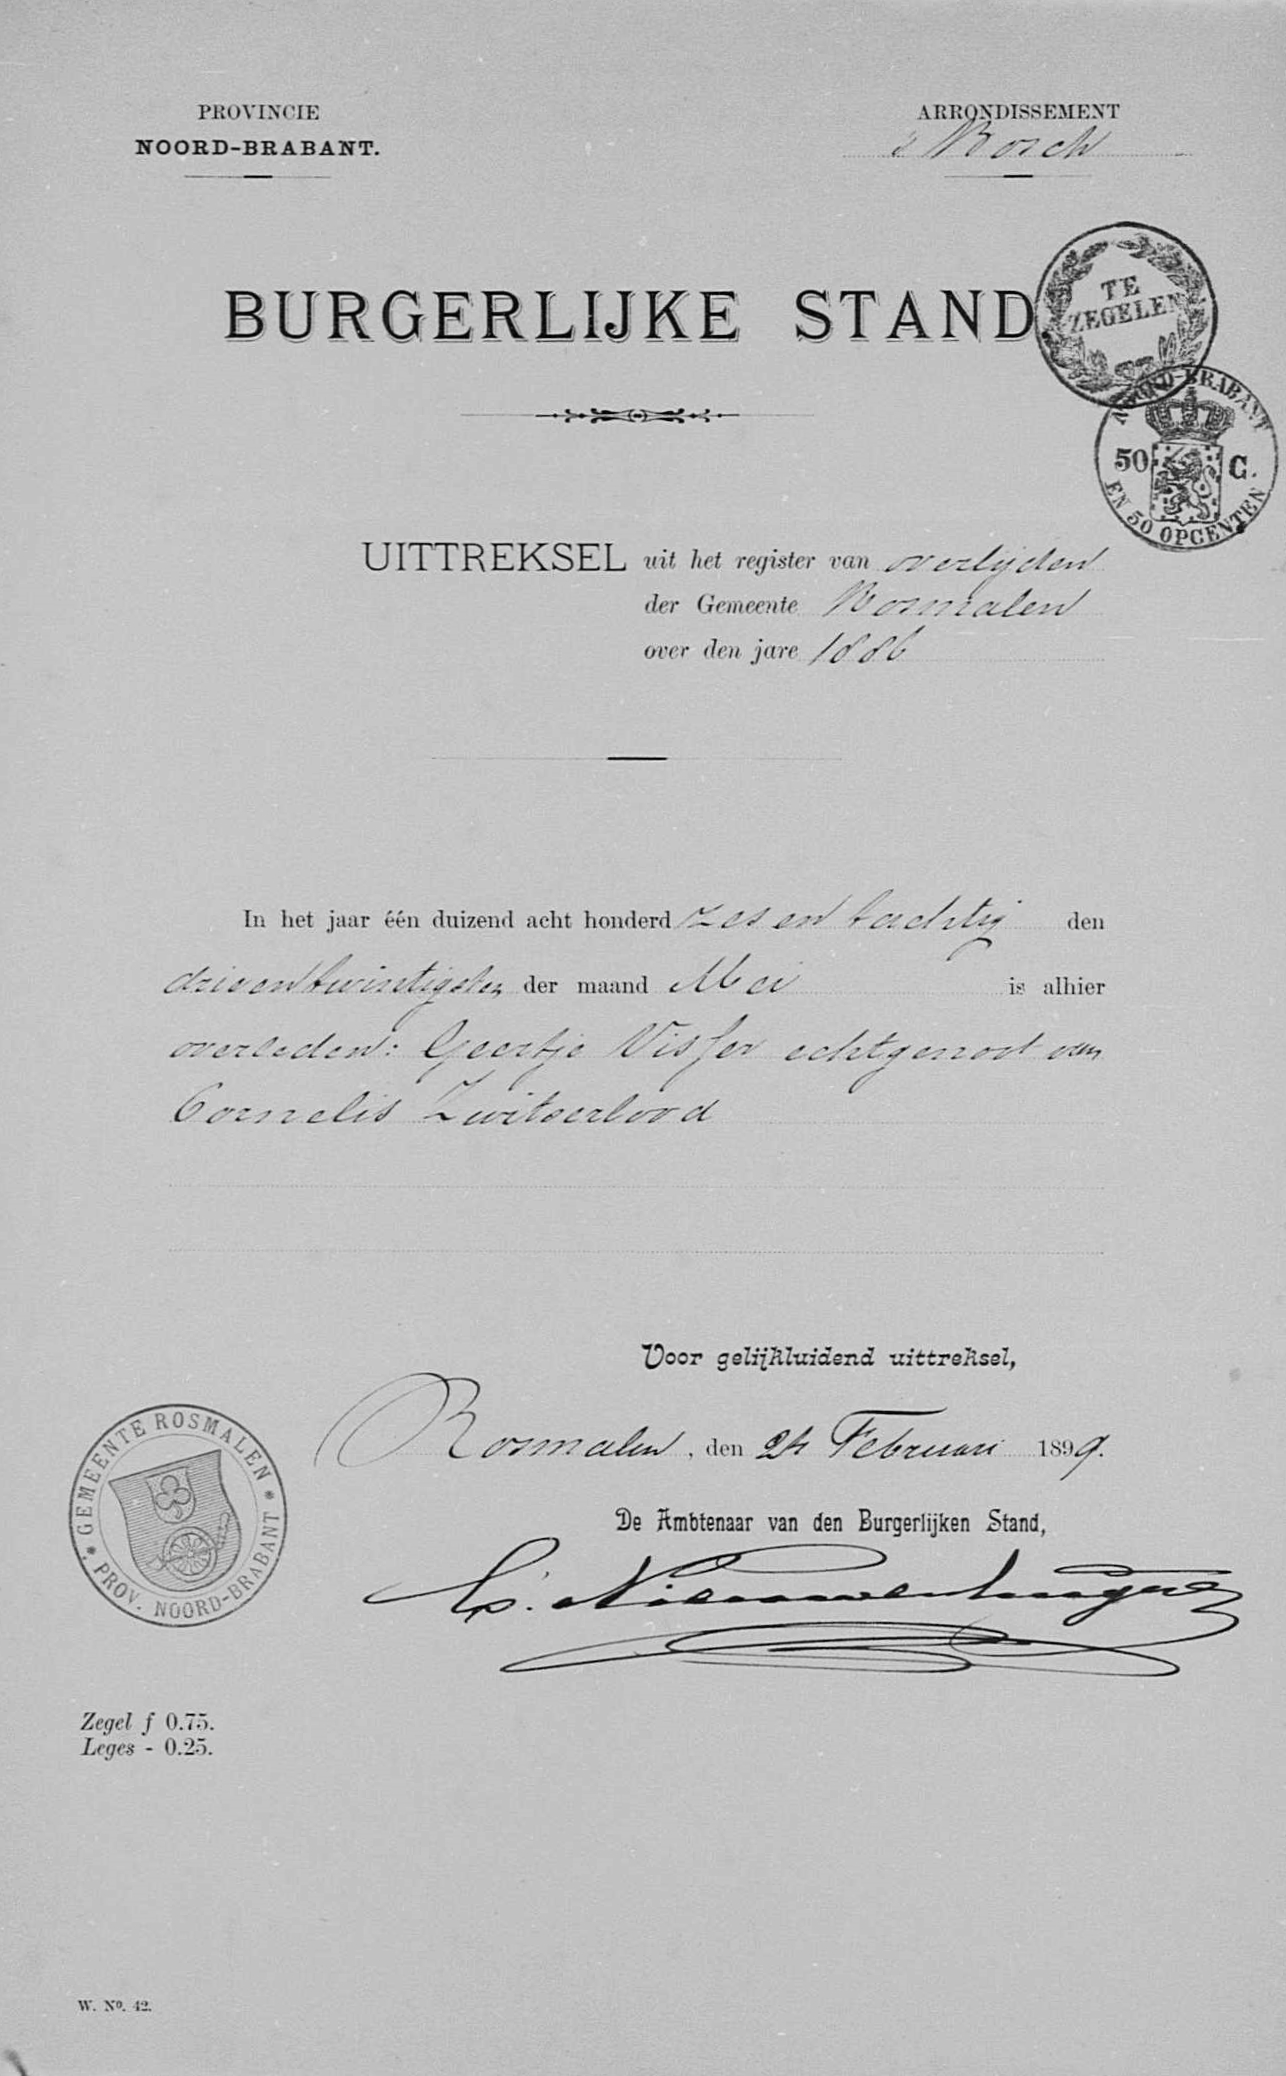 PROVINCIE
NOORD-BRABANT.
ARRONDISSEMENT
's Bosch
BURGERLIJKE STAND.
TE
ZEGELEN
NOORD-BRABANT
50 C.
EN 50 OPCENTEN
UITTREKSEL uit het register van overlijden
der Gemeente Rosmalen
over den jare 1886
In het jaar één duizend acht honderd zes en tachtig den
drieentwintigsten der maand Mei is alhier
overleden: Geertje Visser echtgenoot van
Cornelis Zwitserlood
Voor gelijkluidend uittreksel,
Rosmalen, den 24 Februari 1899.
De Ambtenaar van den Burgerlijken Stand,
Nieuwenhuijzen
* GEMEENTE ROSMALEN *
PROV. NOORD-BRABANT
Zegel f 0.75.
Leges - 0.25.
W. No. 42.